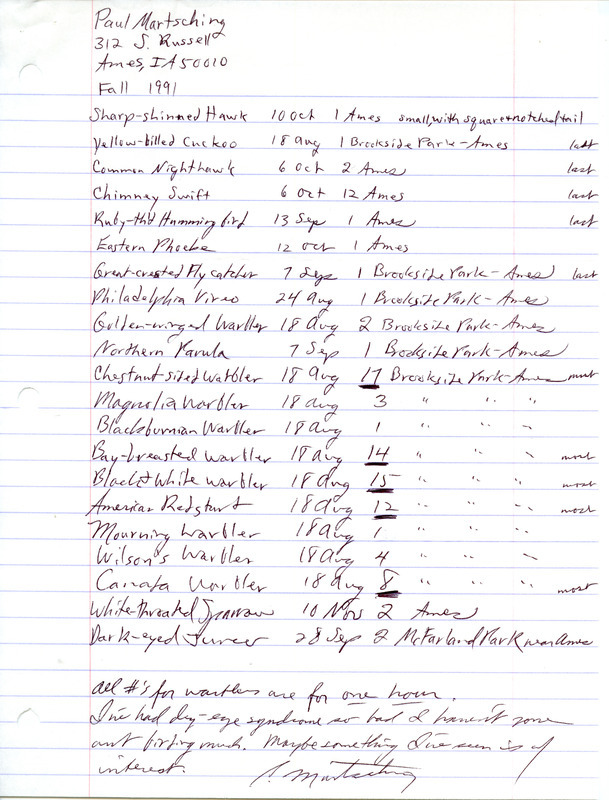 Paul Martsching
312 S. Russell
Ames, IA 50010
Fall 1991
Sharp-shinned Hawk 10 Oct 1 Ames small, with square + notched tail
Yellow-billed Cuckoo 18 Aug 1 Brookside Park-Ames last
Common Nighthawk 6 Oct 2 Ames last
Chimney Swift 6 Oct 12 Ames last
Ruby-thd Hummingbird 13 Sep 1 Ames last
Eastern Phoebe 12 Oct 1 Ames
Great-crested Flycatcher 7 Sep 1 Brookside Park-Ames last
Philadelphia Vireo 24 Aug 1 Brookside Park-Ames
Golden-winged Warbler 18 Aug 2 Brookside Park-Ames
Northern Parula 7 Sep 1 Brookside Park-Ames
Chestnut-sided Warbler 18 Aug 17 Brookside Park-Ames most
Magnolia Warbler 18 Aug 3 " " "
Blackburnian Warbler 18 Aug 1 " " "
Bay-breasted Warbler 18 Aug 14 " " " most
Black & White Warbler 18 Aug 15 " " " most
American Redstart 18 Aug 12 " " " most
Mourning Warbler 18 Aug 1 " " "
Wilson's Warbler 18 Aug 4 " " "
Canada Warbler 18 Aug 8 " " " most
White-throated Sparrow 10 Nov 2 Ames
Dark-eyed Junco 28 Sep 2 McFarland Park near Ames
All #'s for warblers are for one hour.
I've had dry-eye syndrome so bad I haven't gone
out birding much. Maybe something I've seen is of
interest. P. Martsching